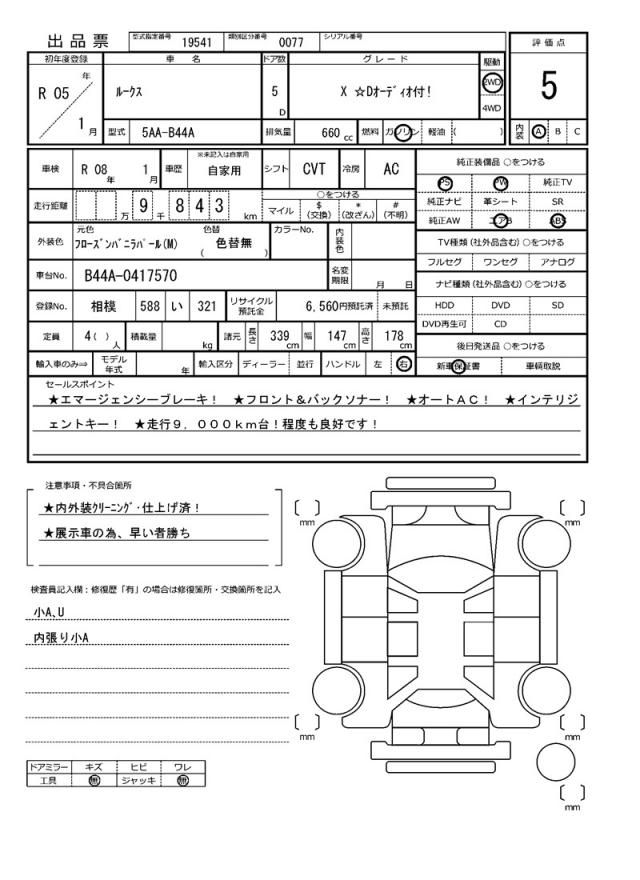 出品票 型式指定番号 19541 類別区分番号 0077 シリアル番号
評価点
5
内装 A B C
初年度登録 車名 ドア数 グレード 駆動
R 05 年 1 月
ルークス
5 D
X ☆Dオーディオ付!
2WD
4WD
型式 5AA-B44A 排気量 660 cc 燃料 ガソリン 軽油 ( )
車検 R 08 年 1 月 車歴 ※未記入は自家用 自家用 シフト CVT 冷房 AC
走行距離 万 9 千 8 4 3 km
○をつける
マイル $ (交換) * (改ざん) # (不明)
外装色 元色 フローズンバニラパール(M) 色替 色替無 ( ) カラーNo. 内装色
車台No. B44A-0417570 名変期限 月 日
登録No. 相模 588 い 321 リサイクル預託金 6,560円預託済 未預託
定員 4( ) 人 積載量 kg 諸元 長さ 339 cm 幅 147 cm 高さ 178 cm
輸入車のみ⇒ モデル年式 年 輸入区分 ディーラー 並行 ハンドル 左 右
純正装備品 ○をつける
PS PW 純正TV
純正ナビ 革シート SR
純正AW エアB ABS
TV種類 (社外品含む) ○をつける
フルセグ ワンセグ アナログ
ナビ種類 (社外品含む) ○をつける
HDD DVD SD
DVD再生可 CD
後日発送品 ○をつける
新車保証書 車輌取説
セールスポイント
★エマージェンシーブレーキ! ★フロント&バックソナー! ★オートAC! ★インテリジ
ェントキー! ★走行9,000km台!程度も良好です!
注意事項・不具合箇所
★内外装クリーニング・仕上げ済!
★展示車の為、早い者勝ち
検査員記入欄:修復歴「有」の場合は修復箇所・交換箇所を記入
小A、U
内張り小A
ドアミラー キズ ヒビ ワレ
工具 無 ジャッキ 無
[ ] mm
[ ] mm
[ ] mm
[ ] mm
[ ] mm